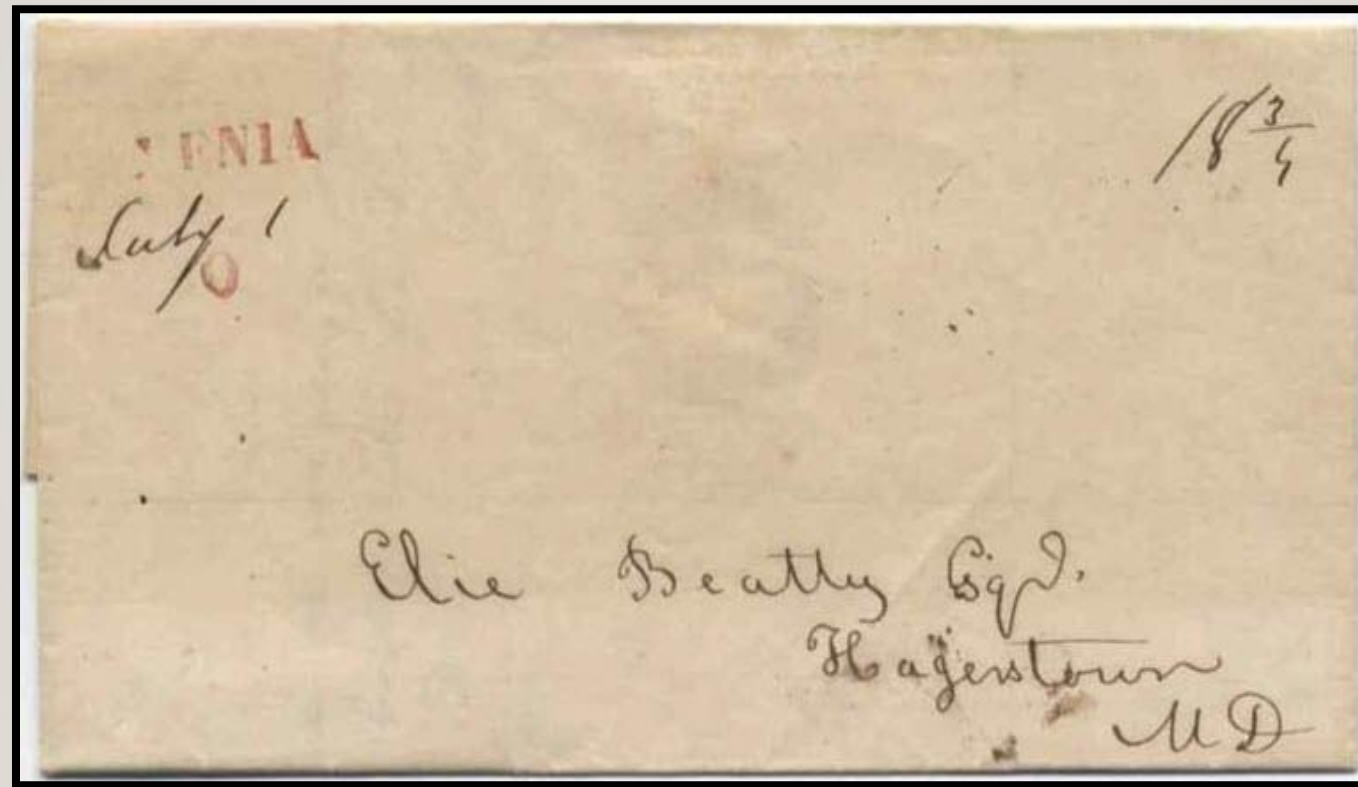 XENIA
18 3/4
July 1
O
Elie Beatty Esqr.
Hagerstown
MD